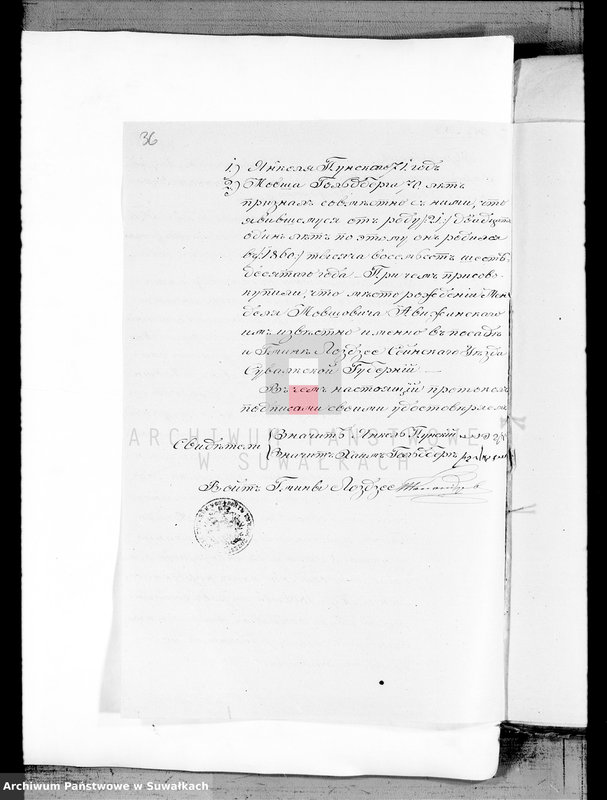 36
1.) Янкеля Пунскаго 71 годъ
2) Мовша Гольдберга 70 лѣтъ
признал совмѣстно съ ними, что
явившемуся отъ роду /21/ двадцать
одинъ лѣтъ по этому онъ родился
въ /1860/ тысяча восемьсот шесть
десятаго года. При чемъ присово
купили, что мѣсто рожденія Мен
деля Мовшовича Авижанскаго
имъ извѣстно именно въ посадѣ
и Гминѣ Лоздзее Сейнскаго Уѣзда
Сувалкской Губерніи —
Въ чемъ настоящій протоколъ
подписами своими удостовѣряемъ
Свидѣтели
Значитъ Янкель Пунскій
Значитъ Хаимъ Гольдбергъ
Войтъ Гмины Лоздзее
ARCHIWUM PAŃSTWOWE
W SUWAŁKACH
Archiwum Państwowe w Suwałkach